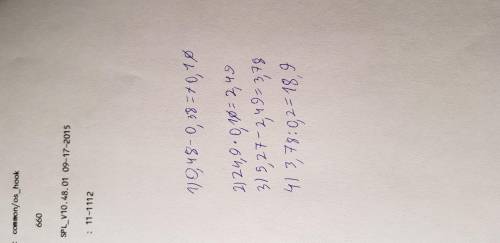 : common/os_hook
660
SPL_V10.48.01 09-17-2015
: 11-1112
1) 0,48-0,38=0,10
2) 24,9·0,10=2,49
3) 5,27-2,49=3,78
4) 3,78:0,2=18,9